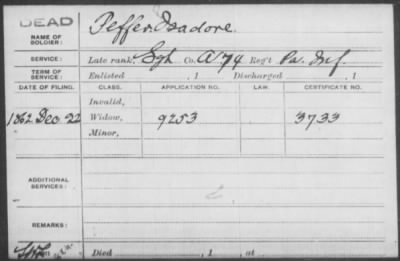 DEAD
NAME OF SOLDIER: Peffer Isadore.
SERVICE: Late rank, Sgt Co. A 74 Reg't Pa. Inf.
TERM OF SERVICE: Enlisted , 1 Discharged , 1
DATE OF FILING. CLASS. APPLICATION NO. LAW. CERTIFICATE NO.
Invalid,
1862 Dec 22 Widow, 9253 3733
Minor,
ADDITIONAL SERVICES:
REMARKS:
Died , 1 , at